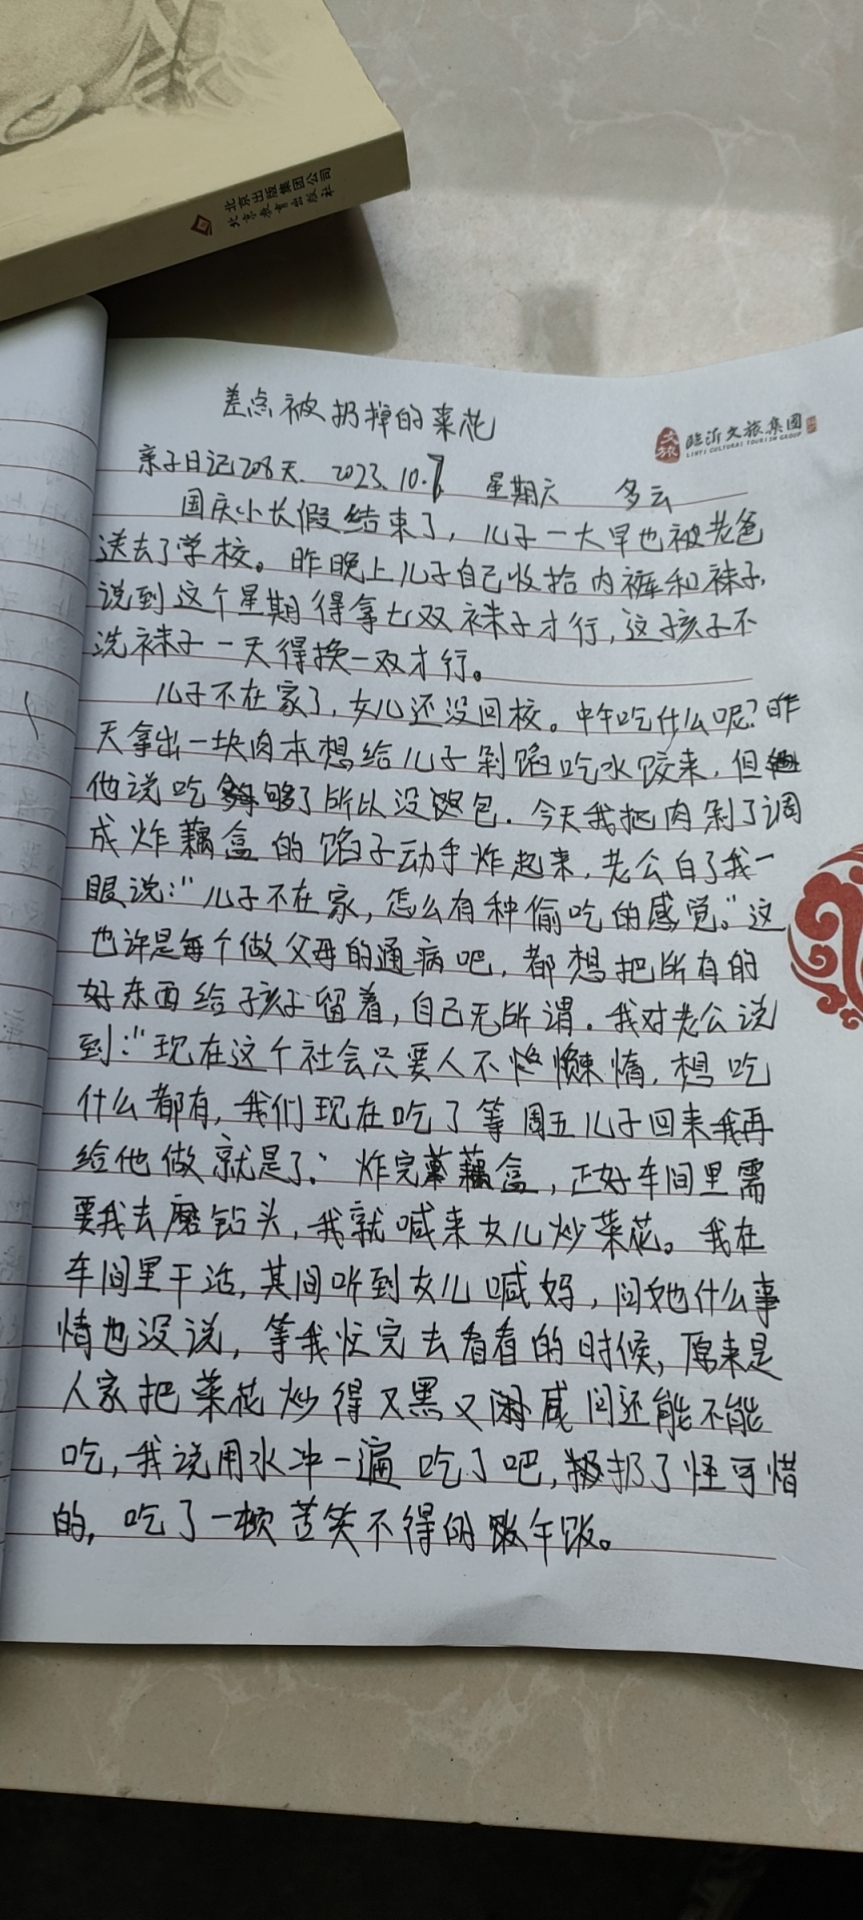 北京出版集团公司
北京教育出版社
差点被扔掉的菜花
文旅 临沂文旅集团
LINYI CULTURAL TOURISM GROUP
亲子日记208天. 2023.10.7 星期六 多云
国庆小长假结束了，儿子一大早也被老爸
送去了学校。昨晚上儿子自己收拾内裤和袜子，
说到这个星期得拿七双袜子才行，这孩子不
洗袜子一天得换一双才行。
儿子不在家了，女儿还没回校。中午吃什么呢？昨
天拿出一块肉本想给儿子剁馅吃水饺来，但
他说吃够了所以没包．今天我把肉剁了调
成炸藕盒的馅子动手炸起来，老公白了我一
眼说：“儿子不在家，怎么有种偷吃的感觉。”这
也许是每个做父母的通病吧，都想把所有的
好东西给子孩子留着，自己无所谓．我对老公说
到：“现在这个社会只要人不懒惰，想吃
什么都有，我们现在吃了等周五儿子回来我再
给他做就是了．”炸完藕盒，正好车间里需
要我去磨钻头，我就喊来女儿炒菜花。我在
车间里干活，其间听到女儿喊妈，问她什么事
情也没说，等我忙完去看看的时候，原来是
人家把菜花炒得又黑又咸问还能不能
吃，我说用水冲一遍吃了吧，扔了怪可惜
的，吃了一顿苦笑不得的午饭。